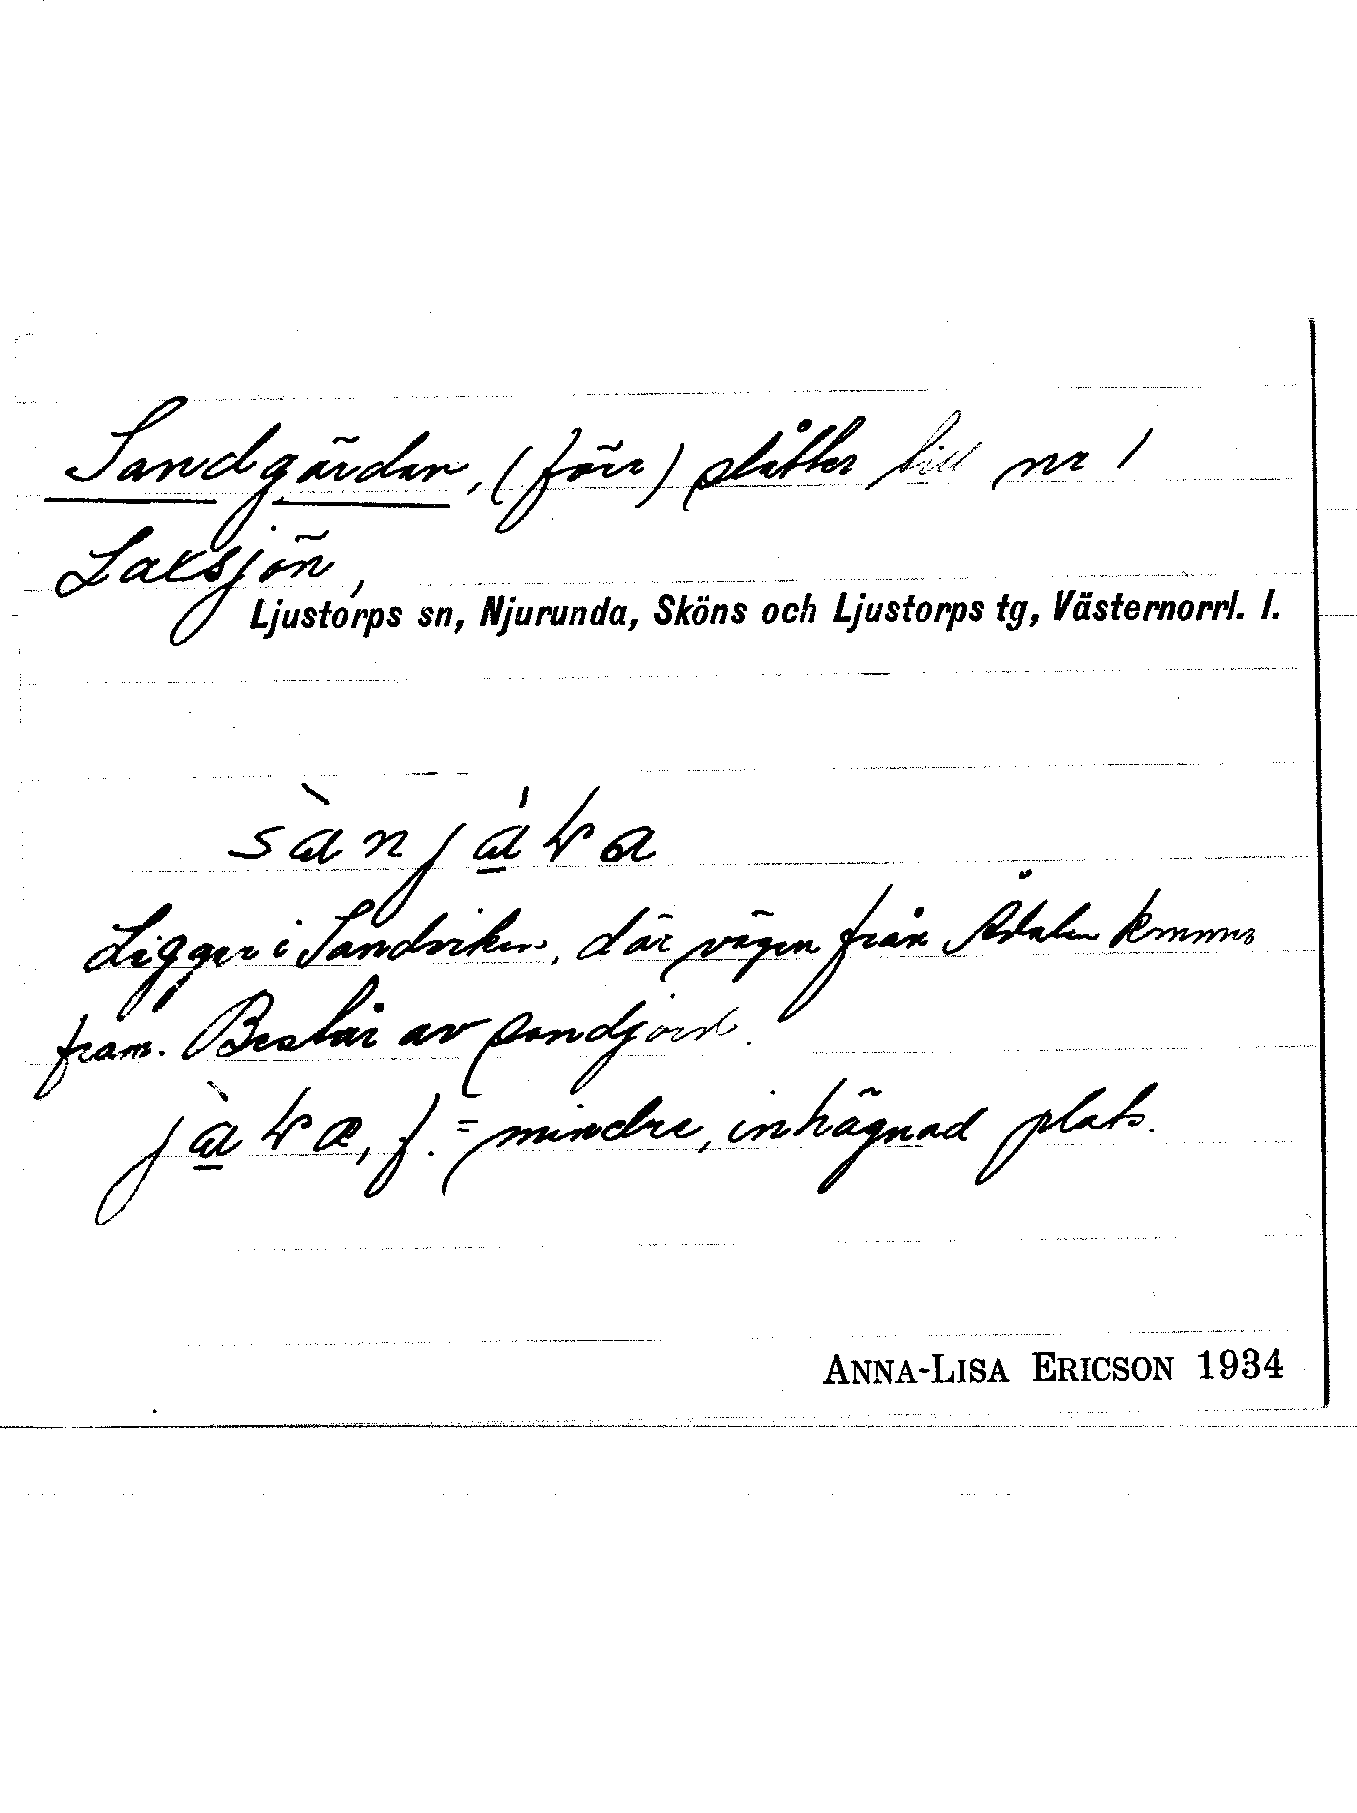 Sandgärdan, (förr) slåtter till nr 1
Laxsjön,
Ljustorps sn, Njurunda, Sköns och Ljustorps tg, Västernorrl. l.
Ligger i Sandviken, där vägen från Ådalen kommer
fram. Består av sandjord.
f. = mindre, inhägnad plats.
ANNA-LISA ERICSON 1934